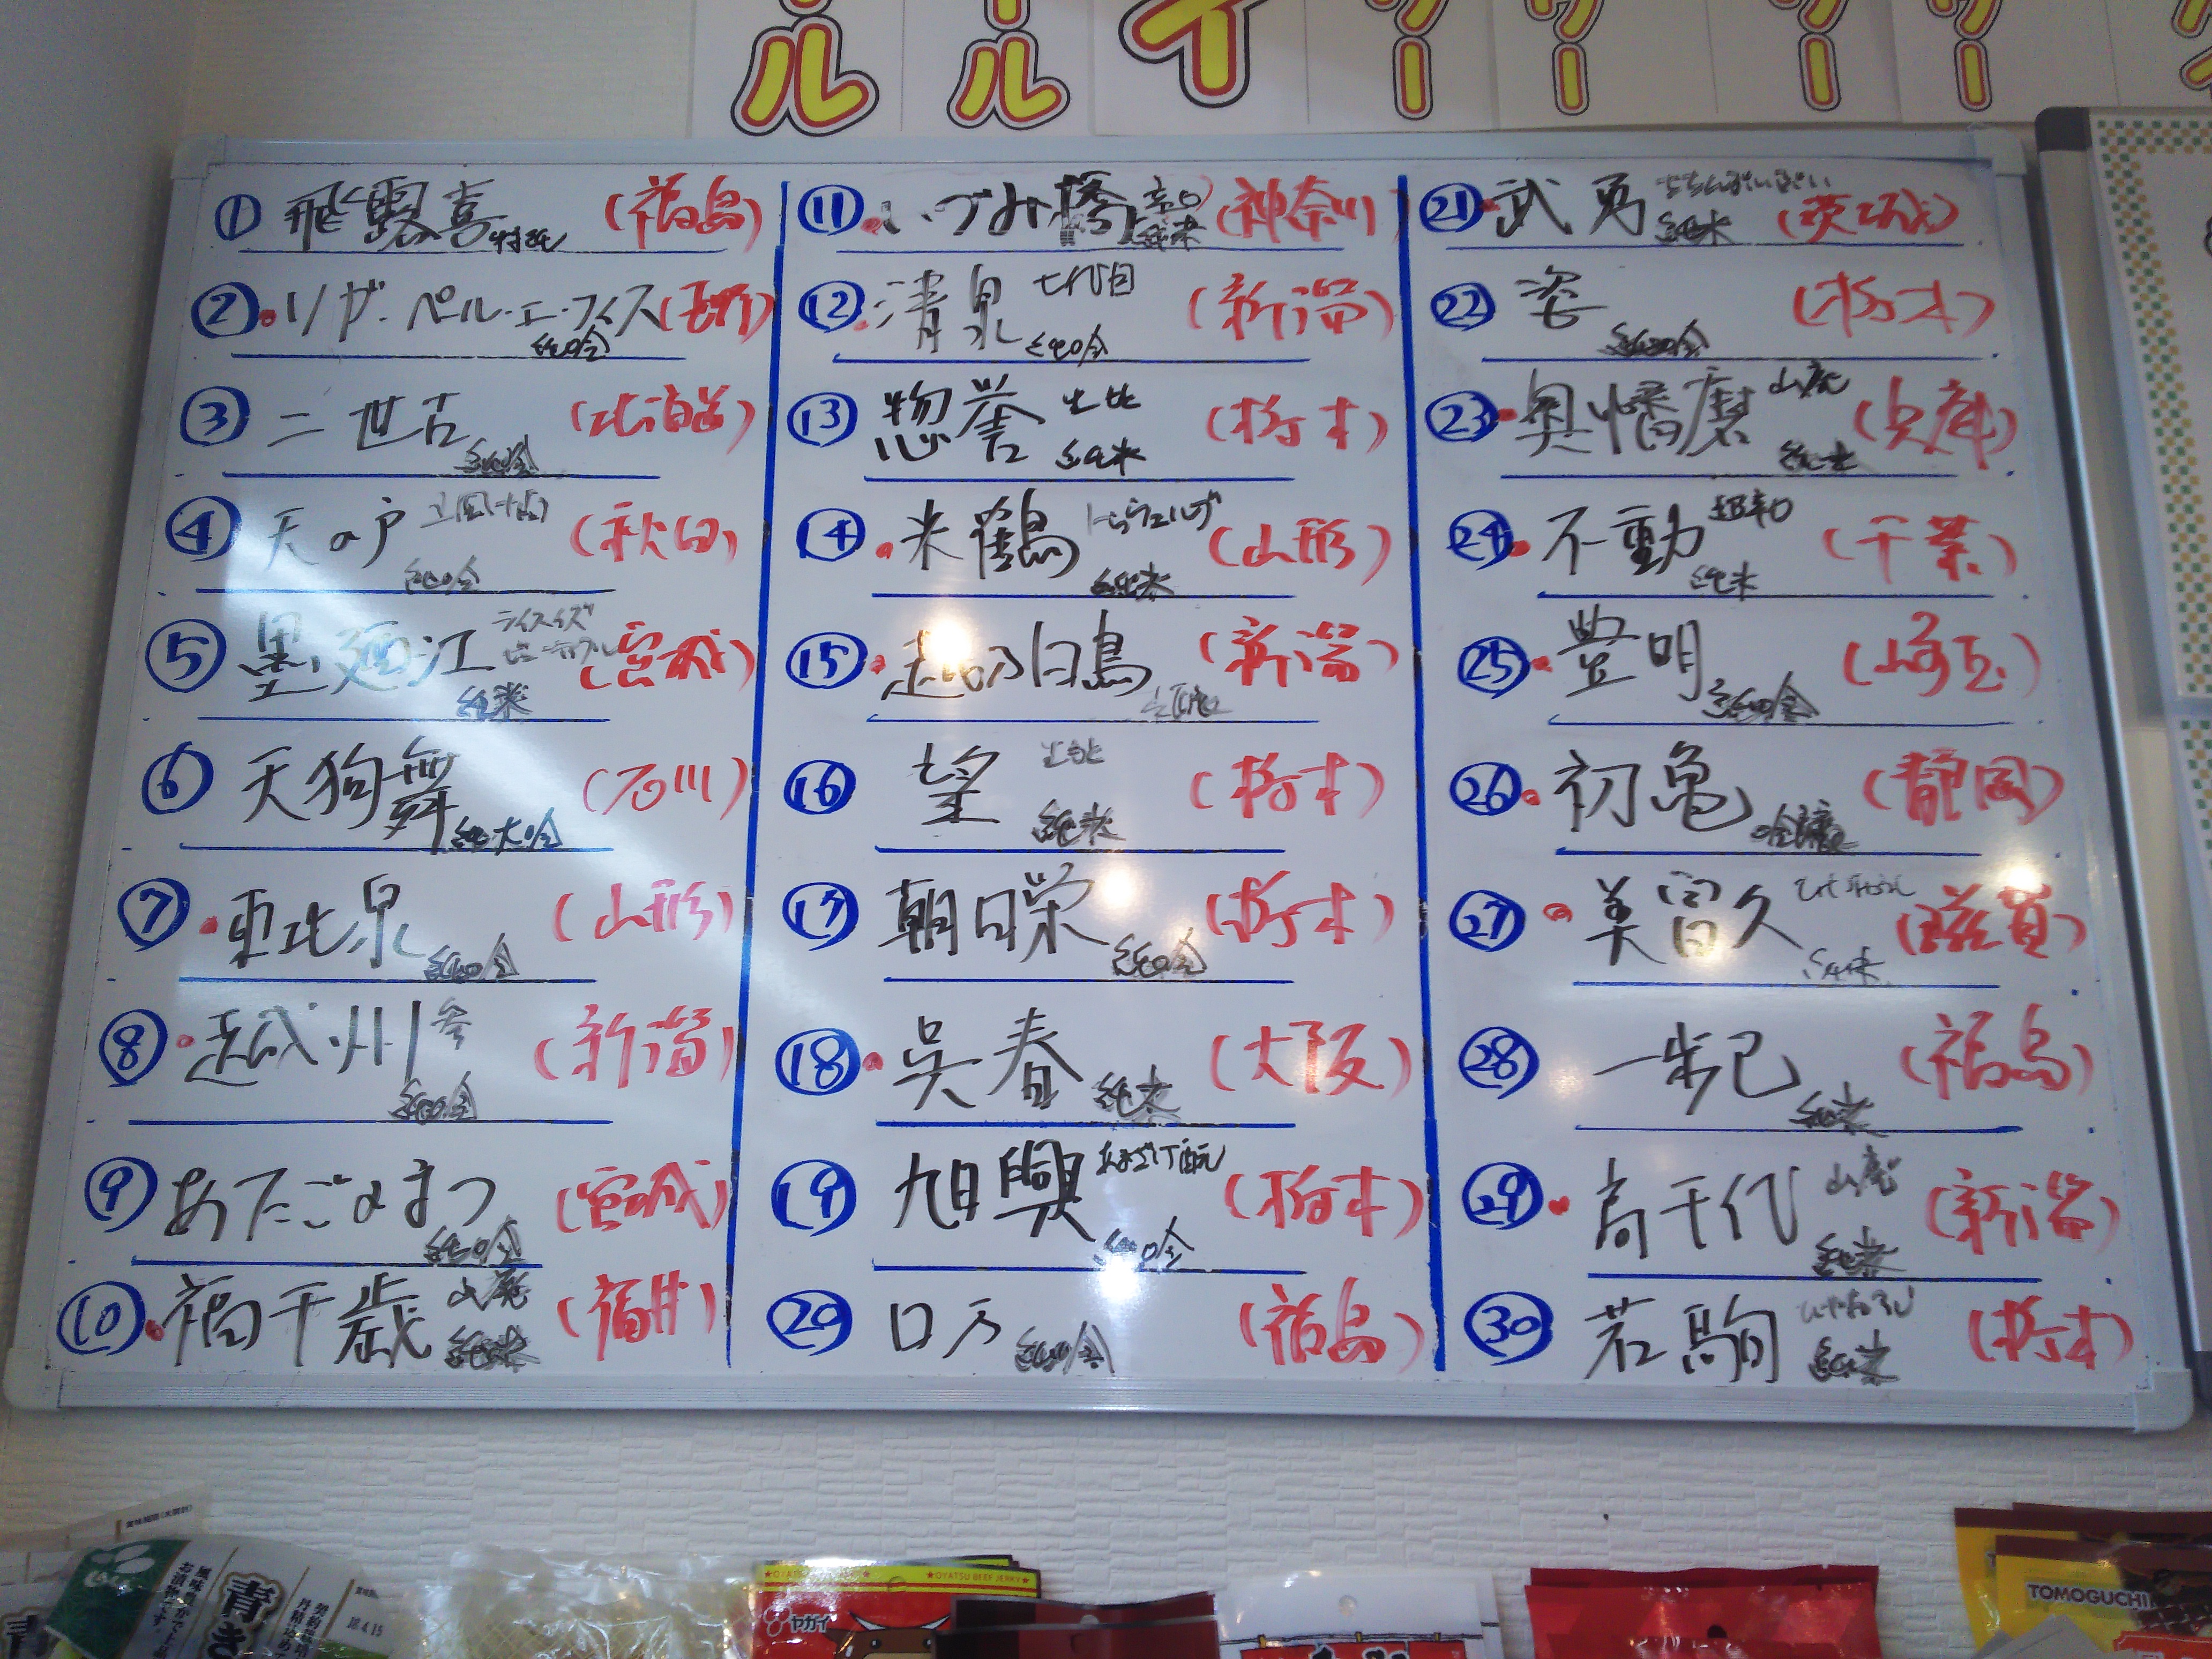 ル ール イ ツー ワー ツー ワー
① 飛露喜 特純 (福島)
② リザ・ペル・エ・フィス 純吟 (長野)
③ 二世古 純吟 (北海道)
④ 天の戸 純吟 (秋田)
⑤ 墨廼江 純米 (宮城)
⑥ 天狗舞 純大吟 (石川)
⑦ 東北泉 純吟 (山形)
⑧ 越州 純吟 (新潟)
⑨ あたごのまつ 純吟 (宮城)
⑩ 福千歳 山廃 純米 (福井)
⑪ いづみ橋 辛口 純米 (神奈川)
⑫ 清泉 七代目 純吟 (新潟)
⑬ 惣誉 生酛 純米 (栃木)
⑭ 米鶴 純米 (山形)
⑮ 越乃白鳥 (新潟)
⑯ 望 純米 (栃木)
⑰ 朝日栄 純吟 (栃木)
⑱ 呉春 純米 (大阪)
⑲ 旭興 純吟 (栃木)
⑳ ロ万 純吟 (福島)
㉑ 武勇 純米 (茨城)
㉒ 姿 純吟 (栃木)
㉓ 奥播磨 山廃 純米 (兵庫)
㉔ 不動 超辛口 純米 (千葉)
㉕ 豊明 純吟 (埼玉)
㉖ 初亀 吟醸 (静岡)
㉗ 美冨久 ひやおろし 純米 (滋賀)
㉘ 一歩己 純米 (福島)
㉙ 高千代 山廃 純米 (新潟)
㉚ 若駒 ひやおろし 純米 (栃木)
青き
18.4.15
★OYATSU BEEF JERKY★
ヤガイ
TOMOGUCHI